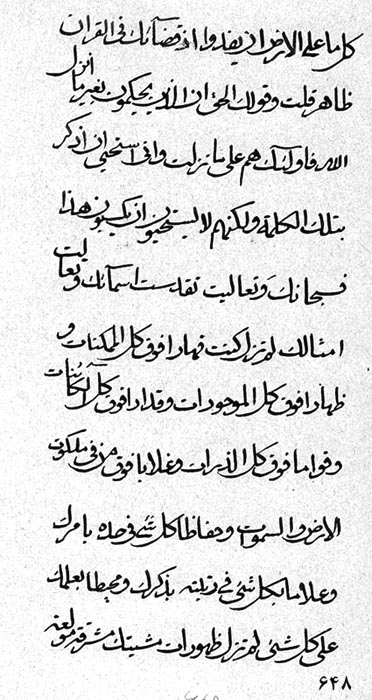 كل ما على الارض ان يفدوا اذ قضائك فى القران
ظاهر قلت وقولك الحق ان الذين يحكمون بغير ما انزل
الله فاولئك هم على ما نزلت وانى استحيى ان اذكر
بتلك الكلمة ولكنهم لا يستحيون ان يكسبون هذا
فسبحانك وتعاليت تقدست اسمائك وتعاليت
امثالك لم تزل كنت قهارا فوق كل الممكنات و
ظهارا فوق كل الموجودات وقدارا فوق كل الكائنات
وقواما فوق كل الذرات وغلابا فوق من فى ملكوت
الارض والسموات وحفاظا كل شئ فى حده بامرك
وعلاما بكل شئ فى رتبته بذكرك ومحيطا بعلمك
على كل شئ لم تزل ظهورات مشيتك مشرقة
۶۴۸